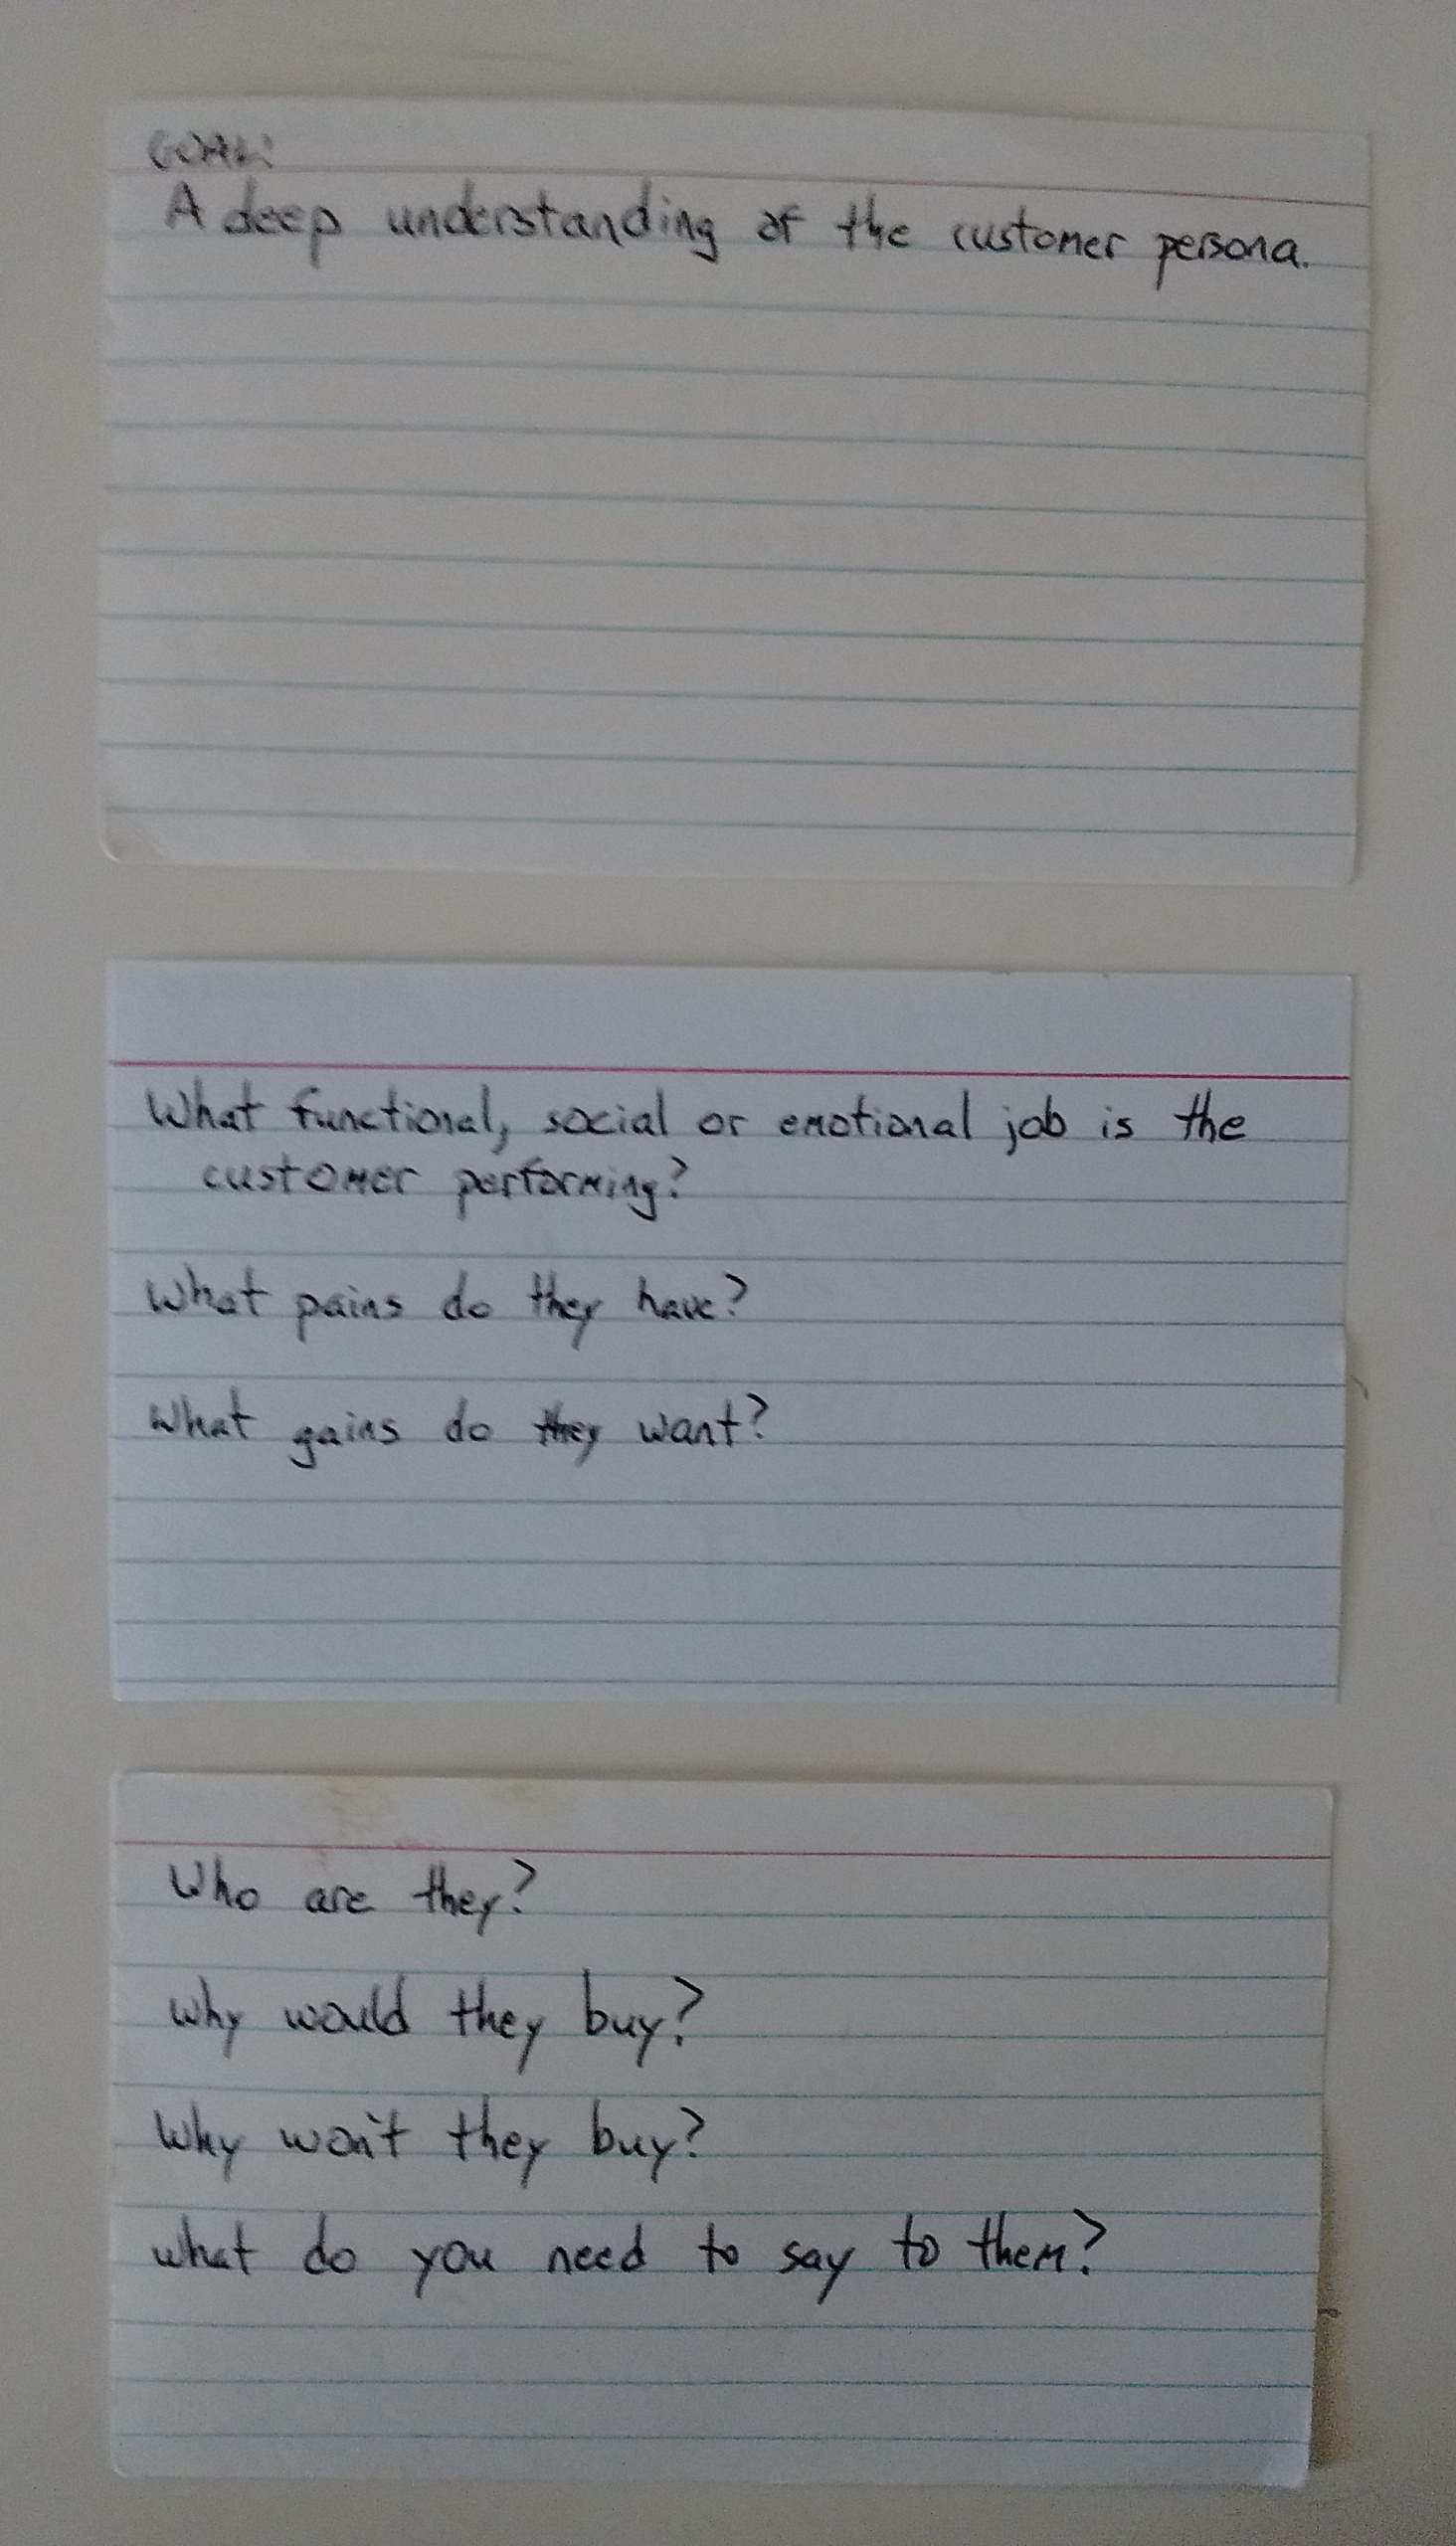 GOAL:
A deep understanding of the customer persona.
What functional, social or emotional job is the
customer performing?
What pains do they have?
What gains do they want?
Who are they?
Why would they buy?
Why won't they buy?
What do you need to say to them?